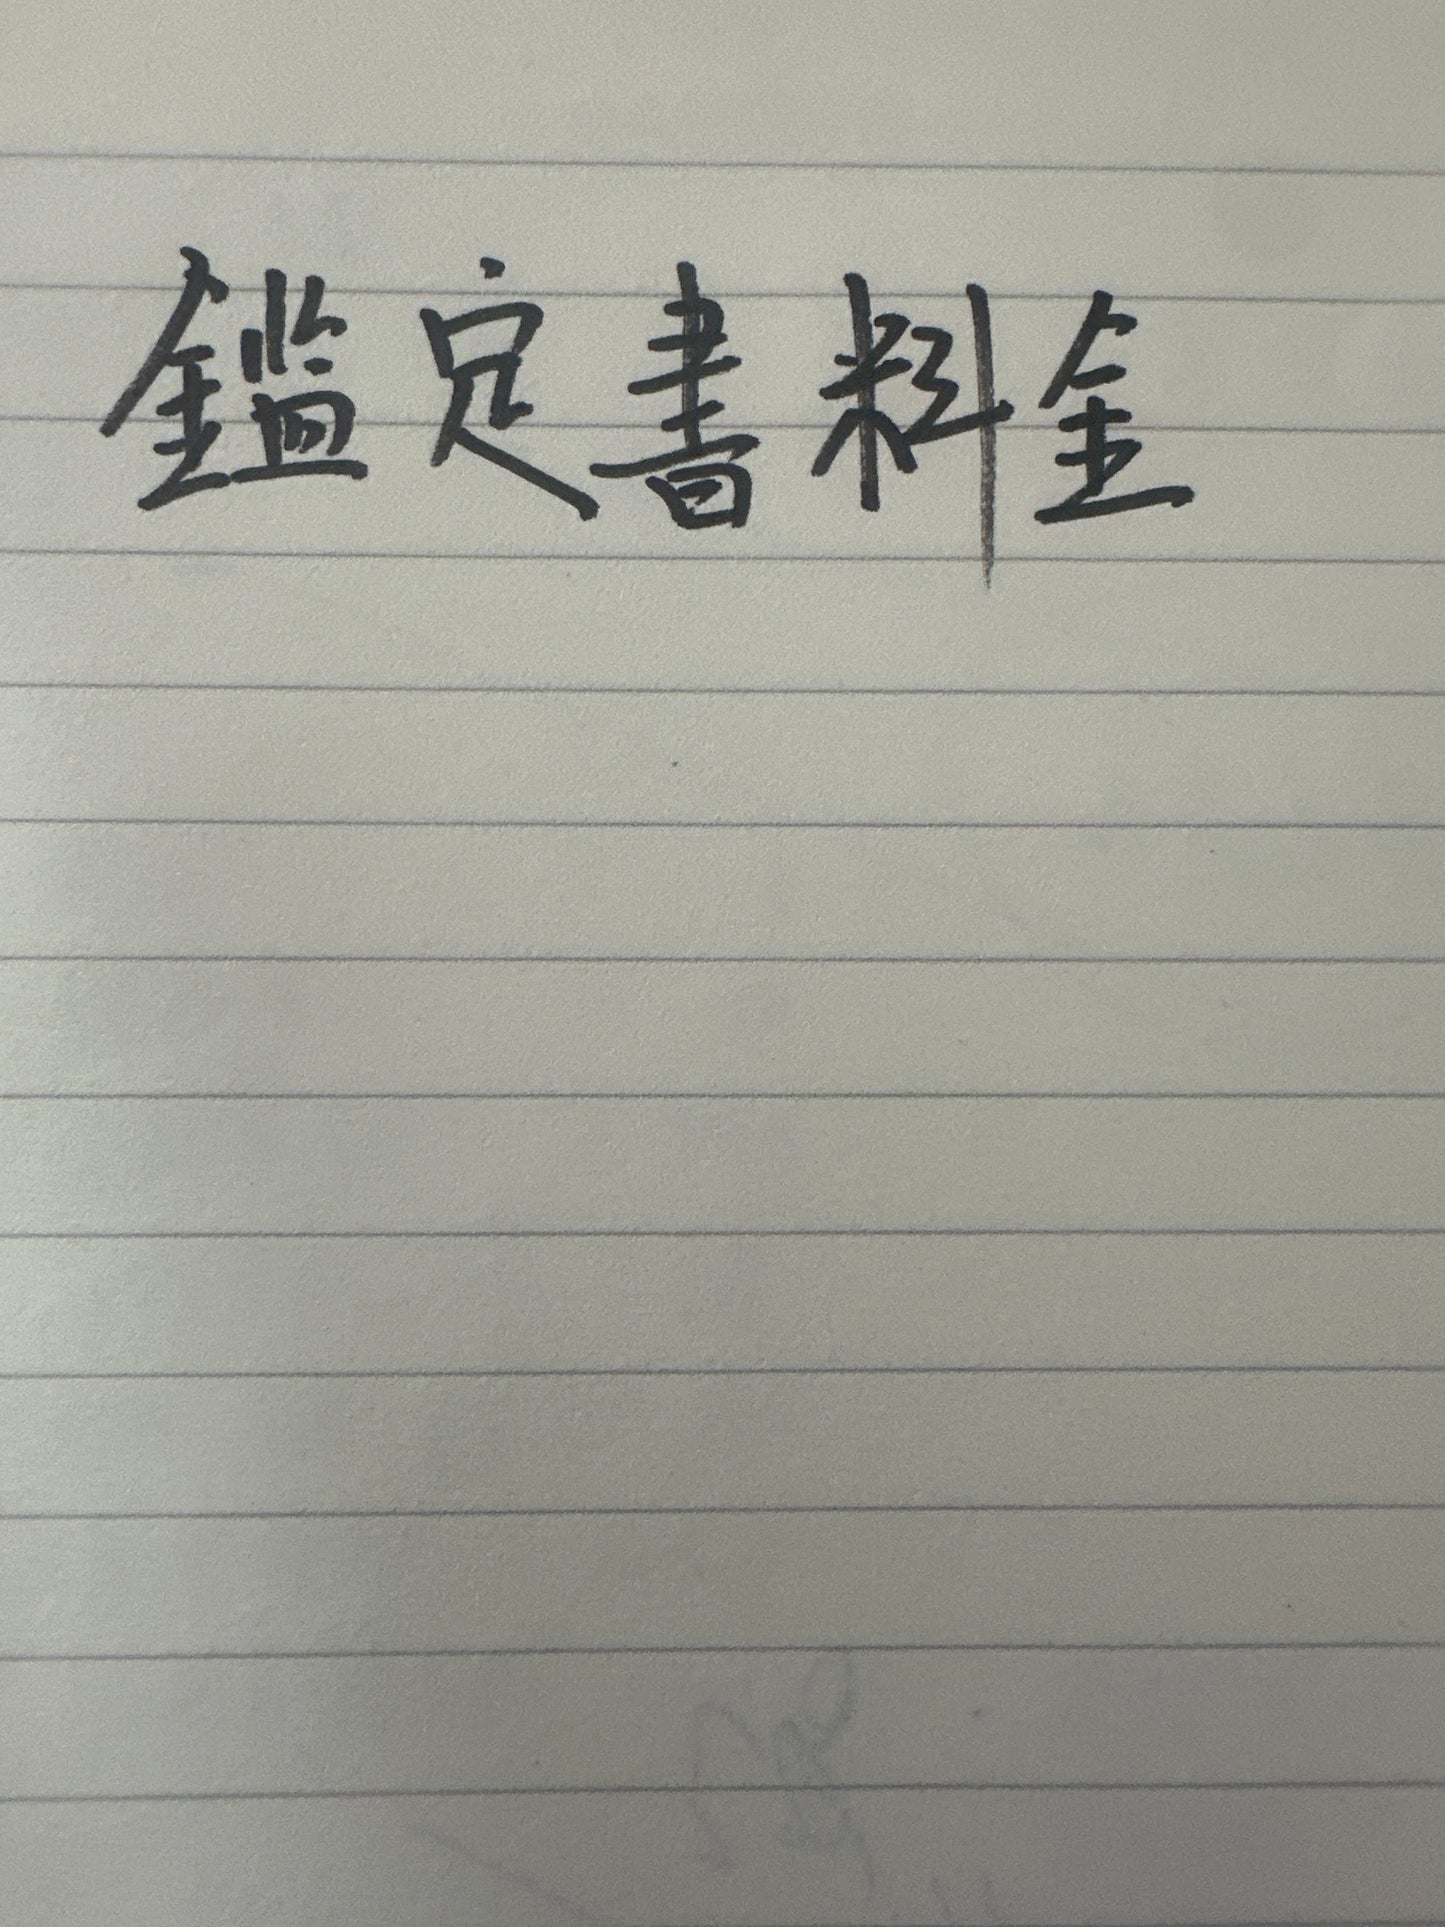 鑑定書料金